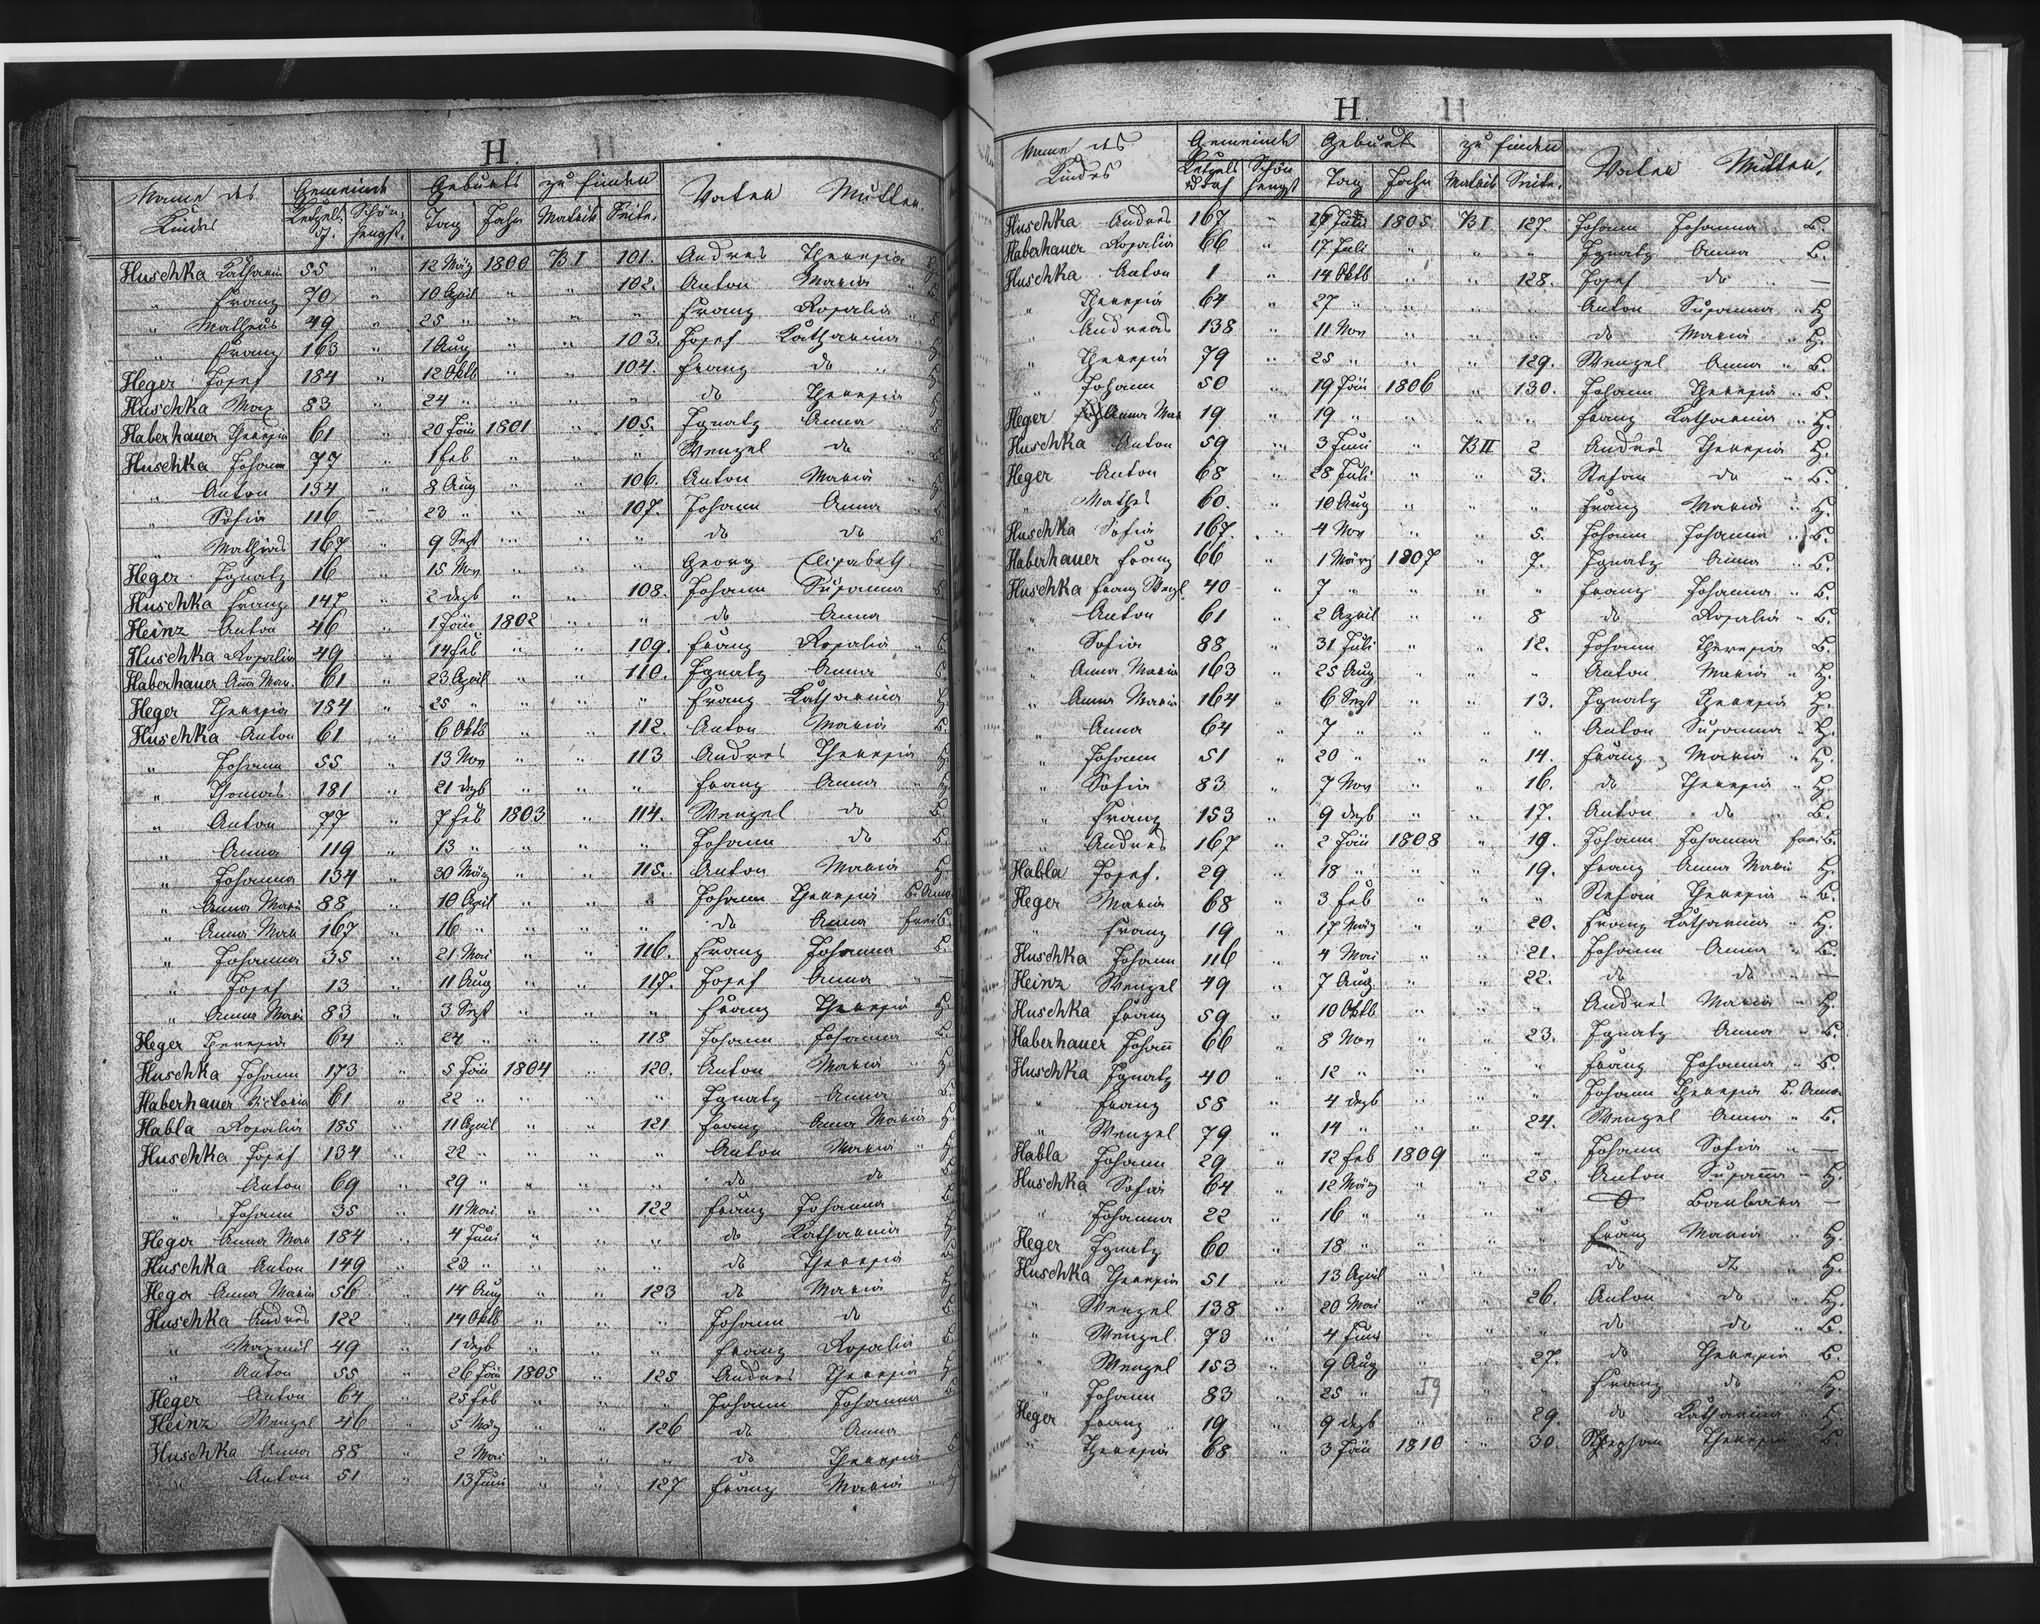 H.
Name des Kindes Gemeinde Ketzelsd. Schönhengst. Geburts Tag Jahr zu finden Matrik Seite. Vater Mutter.
Huschka Katharin 55 " 12 März 1800 B I 101. Andres Theresia
" Franz 70 " 10 April " " 102. Anton Maria "
" Matheus 49 " 25 " " " " Franz Rosalia "
" Franz 163 " 1 Aug " " 103. Josef Katharina " H.
Heger Josef 184 " 12 Oktb " " 104. Franz do " H
Huschka Max 83 " 24 " " " " do Theresia
Haberhauer Theresia 61 " 20 Jän 1801 " 105. Ignatz Anna
Huschka Johann 77 " 1 Feb " " " Wenzel do "
" Anton 134 " 8 Aug " " 106. Anton Maria " H
" Sofia 116 " 23 " " " 107. Johann Anna "
" Mathias 167 " 9 Sept " " " do do
Heger Ignatz 16 " 15 Nov " " " Georg Elisabeth —
Huschka Franz 147 " 2 Dezb " " 108. Johann Susanna
Heinz Anton 46 " 1 Jän 1802 " " do Anna —
Huschka Rosalia 49 " 14 Feb " " 109. Franz Rosalia "
Haberhauer Anna Mar. 61 " 23 April " " 110. Ignatz Anna
Heger Theresia 184 " 25 " " " " Franz Katharina H.
Huschka Anton 61 " 6 Oktb " " 112. Anton Maria B.
" Johann 55 " 13 Nov " " 113 Andres Theresia H.
" Thomas 181 " 21 Dezb " " " Franz Anna " H
" Anton 77 " 7 Feb 1803 " 114. Wenzel do B.
" Anna 119 " 13 " " " " Johann do B.
" Johanna 134 " 30 März " " 115. Anton Maria H
" Anna Maria 88 " 10 April " " " Johann Theresia B. Anna
" Anna Mar 167 " 16 " " " " do Anna Frei B.
" Johanna 35 " 21 Mai " " 116. Franz Johanna B.
" Josef 13 " 11 Aug " " 117. Josef Anna —
" Anna Maria 83 " 3 Sept " " " Franz Theresia H
Heger Theresia 64 " 24 " " " 118 Johann Johanna B.
Huschka Johann 173 " 5 Jän 1804 " 120. Anton Maria " H
Haberhauer Victoria 61 " 22 " " " " Ignatz Anna B
Habla Rosalia 185 " 11 April " " 121 Franz Anna Maria H
Huschka Josef 134 " 22 " " " " Anton Maria " H
" Anton 69 " 29 " " " " do do B
" Johann 35 " 11 Mai " " 122 Franz Johanna B
Heger Anna Mar 184 " 4 Juni " " " do Katharina H
Huschka Anton 149 " 23 " " " " do Theresia
Heger Anna Maria 56 " 14 Aug " " 123 do Maria H
Huschka Andres 122 " 14 Oktb " " " Johann do B
" Maximil 49 " 1 Dezb " " " Franz Rosalia
" Anton 55 " 26 Jän 1805 " 125 Andres Theresia H
Heger Anton 64 " 25 Feb " " " Johann Johanna B
Heinz Wenzel 46 " 5 März " " 126 do Anna
Huschka Anna 88 " 2 Mai " " " do Theresia B
" Anton 51 " 13 Juni " " 127 Franz Maria " H
H.
Name des Kindes Gemeinde Ketzelsdorf Schönhengst Geburts Tag Jahr zu finden Matrik Seite. Vater Mutter.
Huschka Andres 167 " 26 Juli 1805 B I 127. Johann Johanna B.
Haberhauer Rosalia 66 " 17 Juli " " " Ignatz Anna B.
Huschka Anton 1 " 14 Oktb " " 128. Josef do " —
" Theresia 64 " 27 " " " " Anton Susanna " H
" Andreas 138 " 11 Nov " " " do Maria " H.
" Theresia 79 " 25 " " " 129. Wenzel Anna " B.
" Johann 50 " 19 Jän 1806 " 130. Johann Theresia " B.
Heger Anna Mar 19 " 19 " " " " Franz Katharina " H.
Huschka Anton 59 " 3 Juni " B II 2 Andres Theresia H.
Heger Anton 68 " 28 Juli " " 3. Stefan do " B.
" Mathes 60. " 10 Aug " " " Franz Maria " H.
Huschka Sofia 167. " 4 Nov " " 5. Johann Johanna " B.
Haberhauer Franz 66 " 1 März 1807 " 7. Ignatz Anna " B.
Huschka Franz Wenzl. 40 " 7 " " " " Franz Johanna " B.
" Anton 61 " 2 April " " 8 do Rosalia " B.
" Sofia 88 " 31 Juli " " 12. Johann Theresia B.
" Anna Maria 163 " 25 Aug " " " Anton Maria " H.
" Anna Maria 164 " 6 Sept " " 13. Ignatz Theresia H.
" Anna 64 " 7 " " " " Anton Susanna " H.
" Johann 51 " 20 " " " 14. Franz Maria " H.
" Sofia 83 " 7 Nov " " 16. do Theresia " H
" Franz 153 " 9 Dezb " " 17. Anton do " B.
" Andres 167 " 2 Jän 1808 " 19. Johann Johanna Frei B.
Habla Josef. 29 " 18 " " " 19. Franz Anna Maria H.
Heger Maria 68 " 3 Feb " " " Stefan Theresia " B.
" Franz 19 " 17 März " " 20. Franz Katharina " H.
Huschka Johann 116 " 4 Mai " " 21. Johann Anna " B.
Heinz Wenzel 49 " 7 Aug " " 22. do do " —
Huschka Franz 59 " 10 Oktb " " " Andres Maria " H.
Haberhauer Johann 66 " 8 Nov " " 23. Ignatz Anna " B.
Huschka Ignatz 40 " 12 " " " " Franz Johanna " B.
" Franz 58 " 4 Dezb " " " Johann Theresia B. Anna
" Wenzel 79 " 14 " " " 24. Wenzel Anna " B.
Habla Johann 29 " 12 Feb 1809 " " Johann Sofia " —
Huschka Sofia 64 " 12 März " " 25. Anton Susanna — H.
" Johanna 22 " 16 " " " " O Barbara —
Heger Ignatz 60 " 18 " " " " Franz Maria " H.
Huschka Theresia 51 " 13 April " " " do do " H.
" Wenzel 138 " 20 Mai " " 26. Anton do " H.
" Wenzel 73 " 4 Juni " " " do do " B.
" Wenzel 153 " 9 Aug " " 27. do Theresia " B.
" Johann 83 " 25 " " " " Franz do " H.
Heger Franz 19 " 9 Dezb " " 29. do Katharina H.
" Theresia 68 " 3 Jän 1810 " 30. Stephan Theresia B